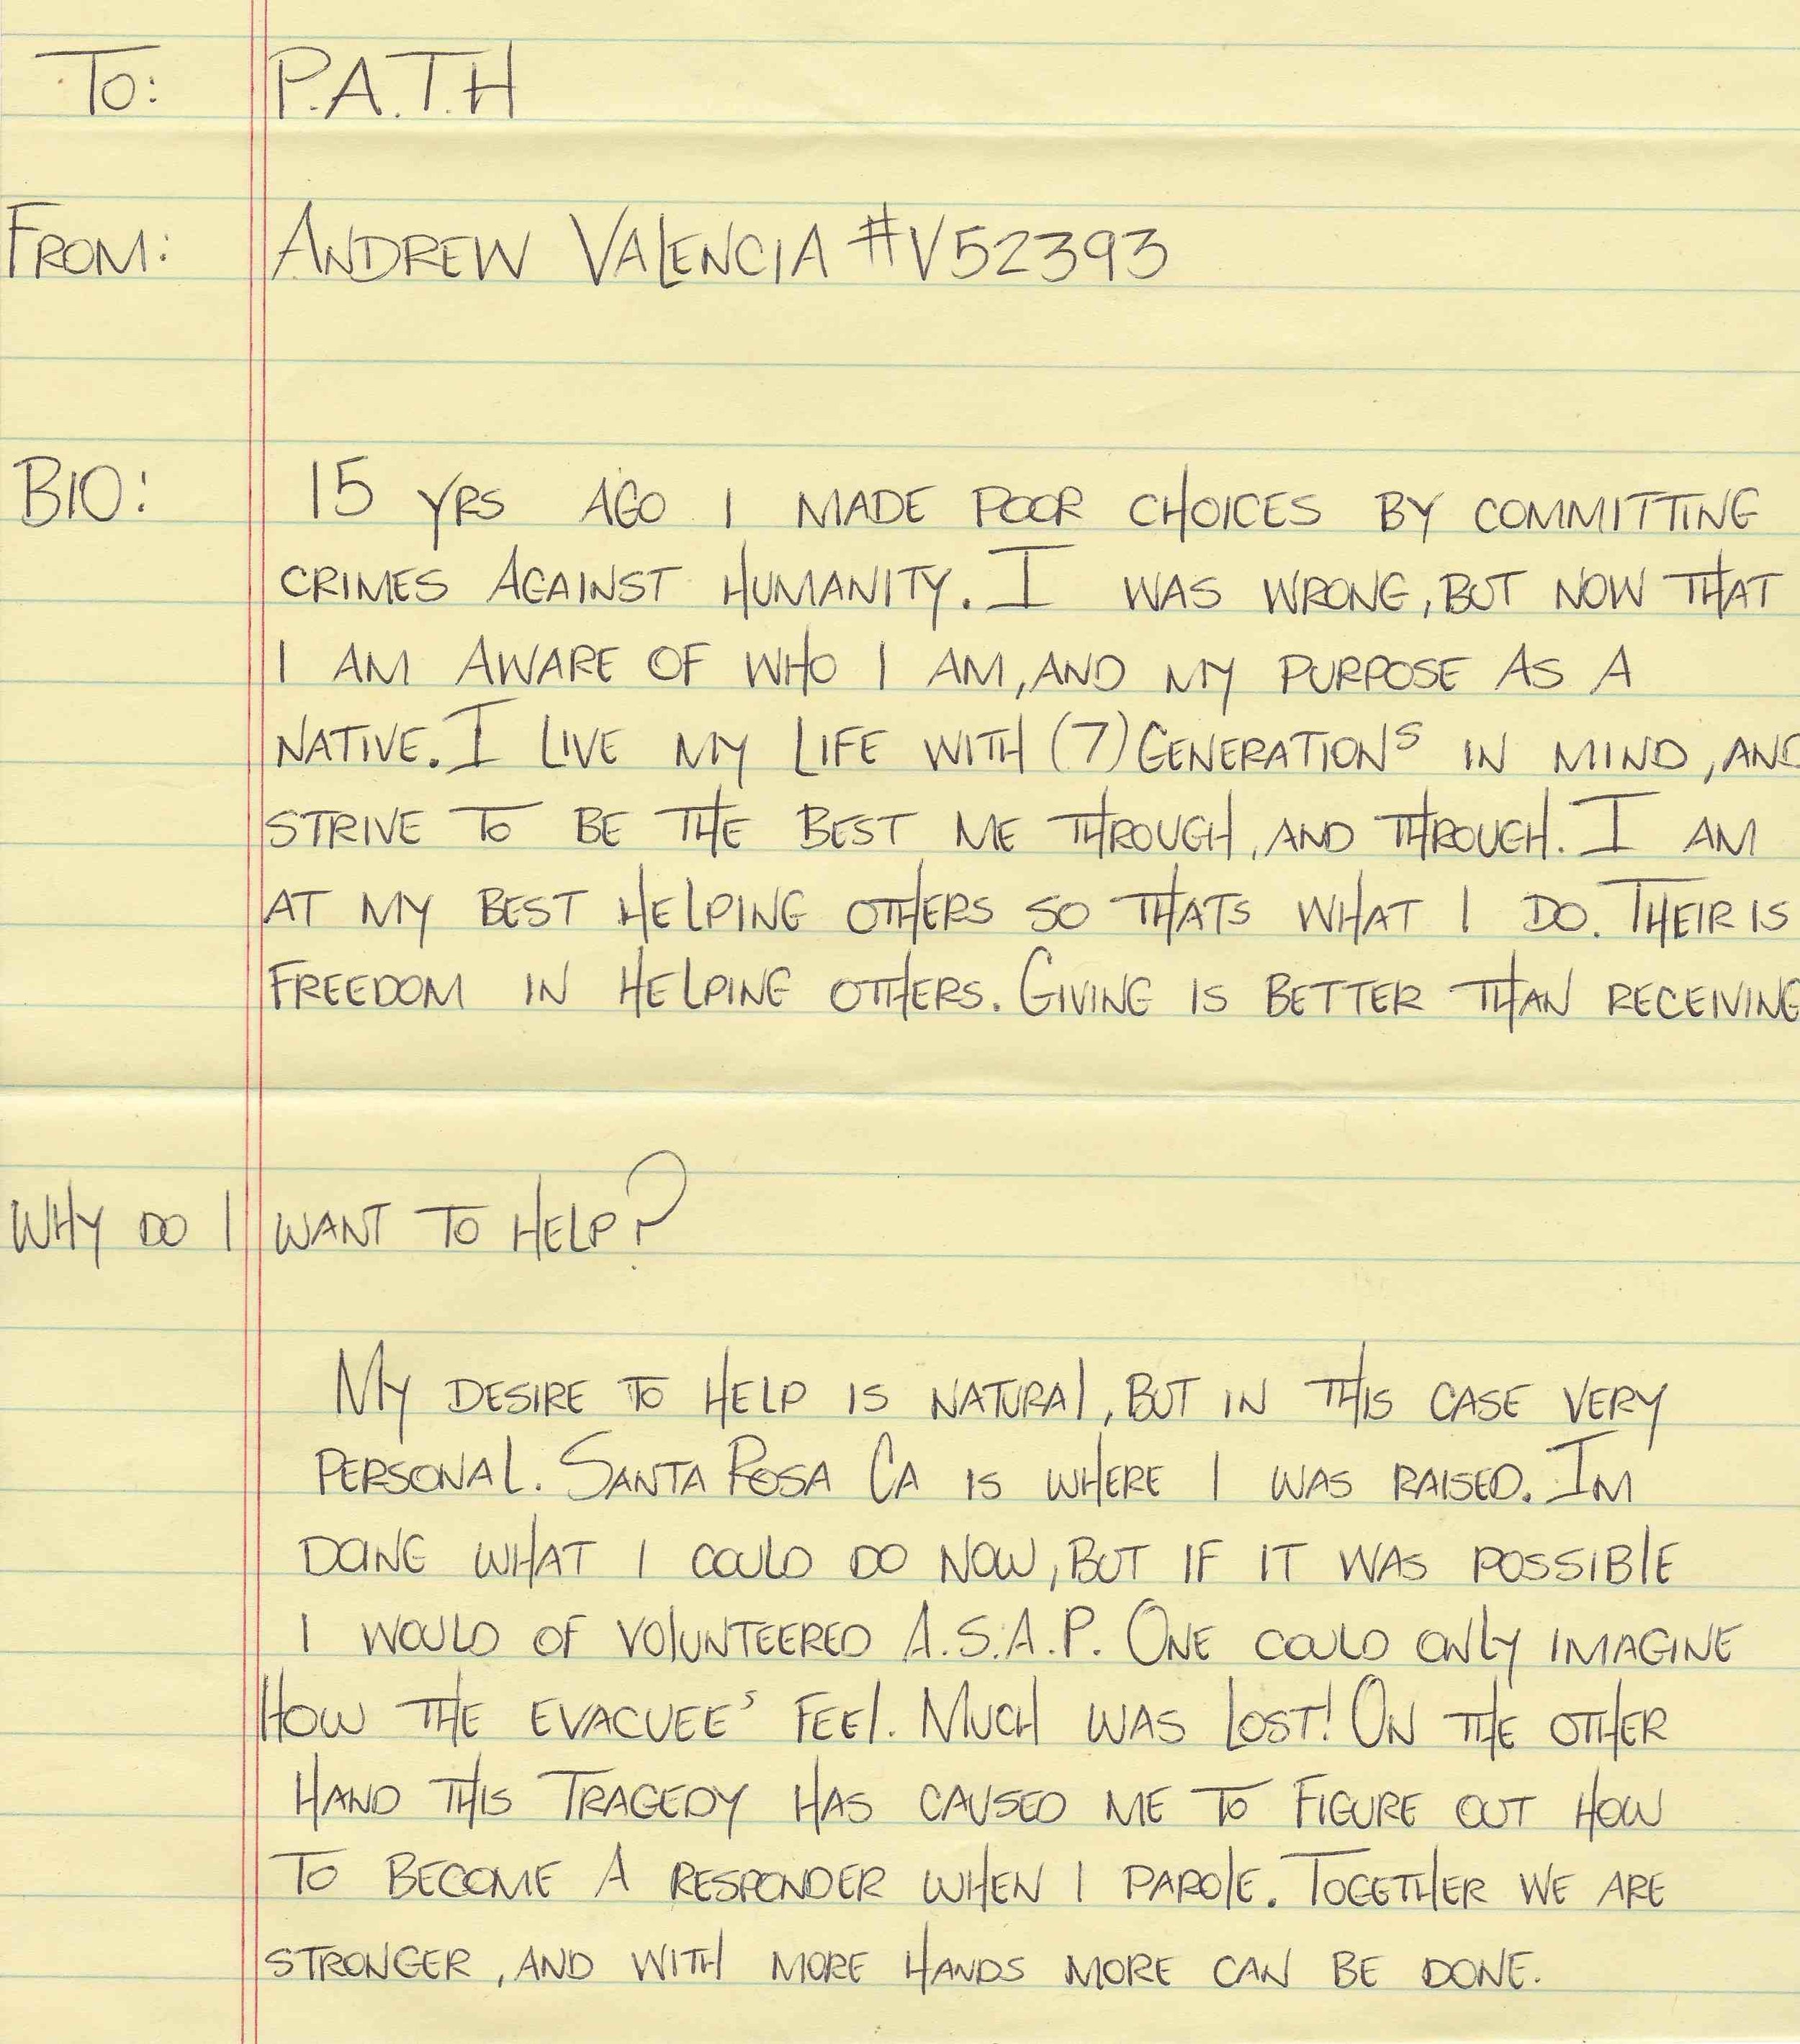 TO: P.A.T.H
FROM: ANDREW VALENCIA #V52393
BIO: 15 YRS AGO I MADE POOR CHOICES BY COMMITTING
CRIMES AGAINST HUMANITY. I WAS WRONG, BUT NOW THAT
I AM AWARE OF WHO I AM, AND MY PURPOSE AS A
NATIVE. I LIVE MY LIFE WITH (7) GENERATIONS IN MIND, AND
STRIVE TO BE THE BEST ME THROUGH, AND THROUGH. I AM
AT MY BEST HELPING OTHERS SO THATS WHAT I DO. THEIR IS
FREEDOM IN HELPING OTHERS. GIVING IS BETTER THAN RECEIVING
WHY DO I WANT TO HELP?
MY DESIRE TO HELP IS NATURAL, BUT IN THIS CASE VERY
PERSONAL. SANTA ROSA CA IS WHERE I WAS RAISED. IM
DOING WHAT I COULD DO NOW, BUT IF IT WAS POSSIBLE
I WOULD OF VOLUNTEERED A.S.A.P. ONE COULD ONLY IMAGINE
HOW THE EVACUEE'S FEEL. MUCH WAS LOST! ON THE OTHER
HAND THIS TRAGEDY HAS CAUSED ME TO FIGURE OUT HOW
TO BECOME A RESPONDER WHEN I PAROLE. TOGETHER WE ARE
STRONGER, AND WITH MORE HANDS MORE CAN BE DONE.